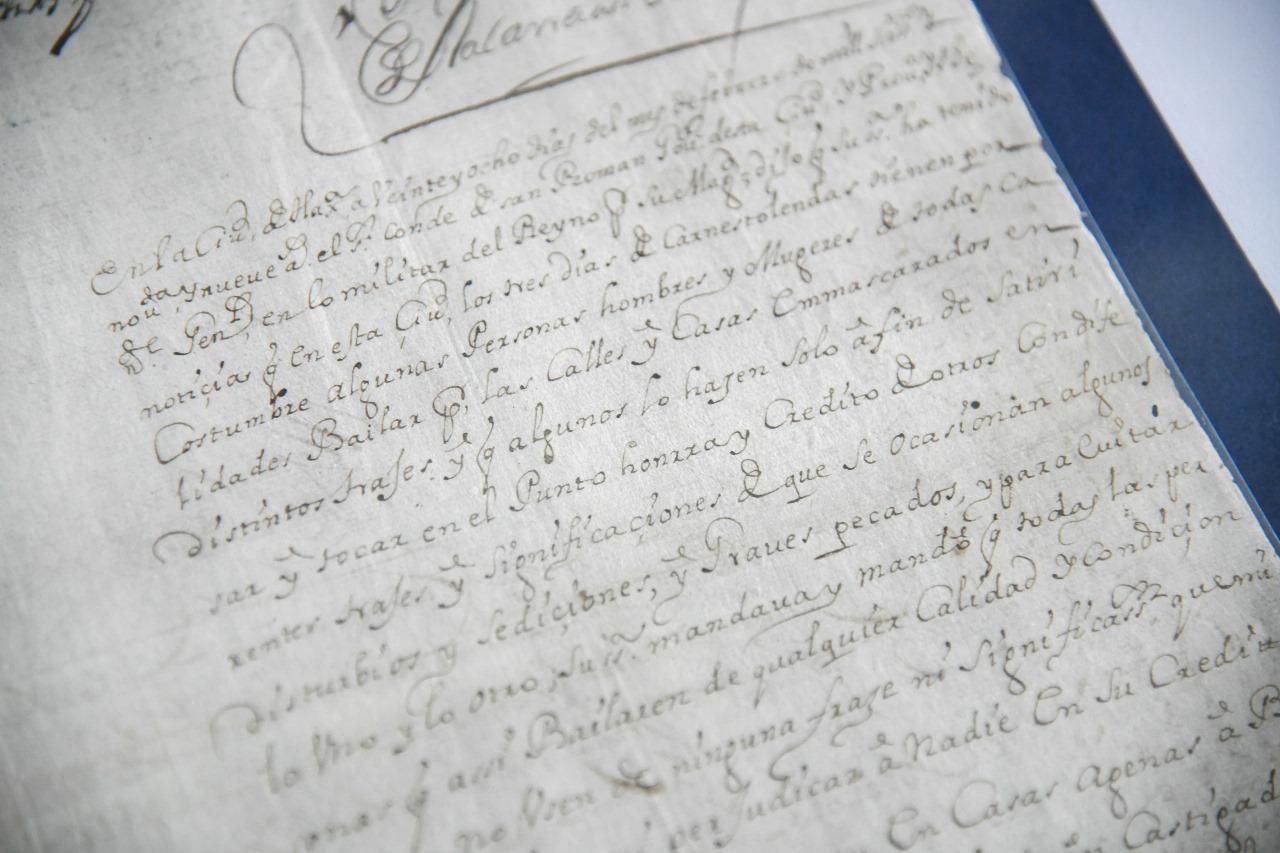 Salamanca
En la Ciud. de Tlaxa. a Veinte y ocho días del mes de febrero de mill
nou.ta y nueve a.s el S.r Conde de san Roman Gou.or desta Ciud. y Prou.a
The.e Gen.l en lo militar del Reyno p. su Mag.d dijo q su s.a ha tenido
noticias q en esta Ciud. los tres días de Carnestolendas tienen por
Costumbre algunas Personas hombres y Mugeres de todas Ca
lidades Bailar p. las Calles y Casas Emmascarados en
distintos trajes. y q algunos lo hazen solo a fin de Satiri
sar y tocar en el Punto honrra y Credito de otros Con dife
rentes trajes y significaçiones de que se ocasionan algunos
disturbios y sediçiones, y Graves pecados, y para Quitar
lo Uno y lo otro, su s.a mandaua y mandó q todas las per
onas q assi Bailaren de qualquier Calidad y Condiçion
no Usen de ninguna fraze ni significass.n que mi
perjudicar a Nadie En su Credito
En Casas agenas à B
Castigad